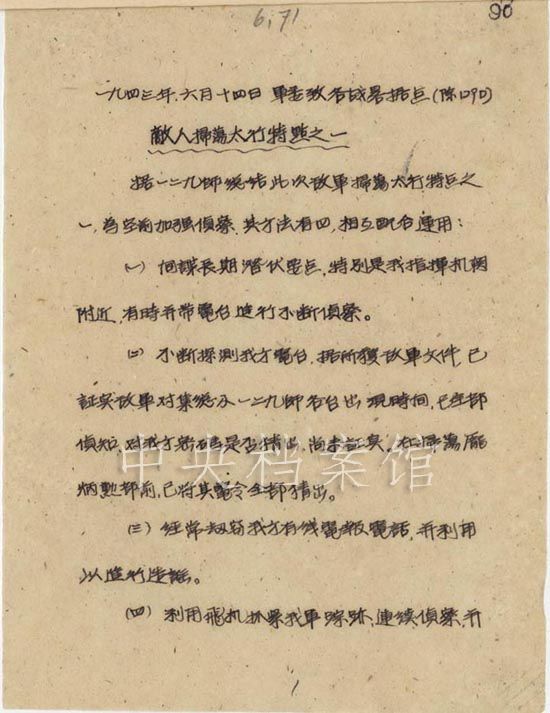 6.71
90
一九四三年.六月十四日 軍委致各战畧据点(陈1290)
敵人掃蕩太行特點之一
据一二九師総结此次敌軍掃蕩太行特点之
一,為空前加强偵察.其方法有四,相互配合運用:
(一) 间諜長期潛伏要点,特别是我指揮机関
附近,有時并带電台進行不断偵察。
(二) 不断探測我方電台,据所獲敌軍文件,已
証实敌軍对集総及一二九師各台出現時间,已全部
偵知,对我方密碼是否猜出,尚未証实.在掃蕩龐
炳勲部前,已将其電令全部猜出。
(三) 經常刼窃我方有线電報電話,并利用
以進行造謠。
(四) 利用飛机抓緊我軍踪跡,連續偵察,并
中央档案馆
1